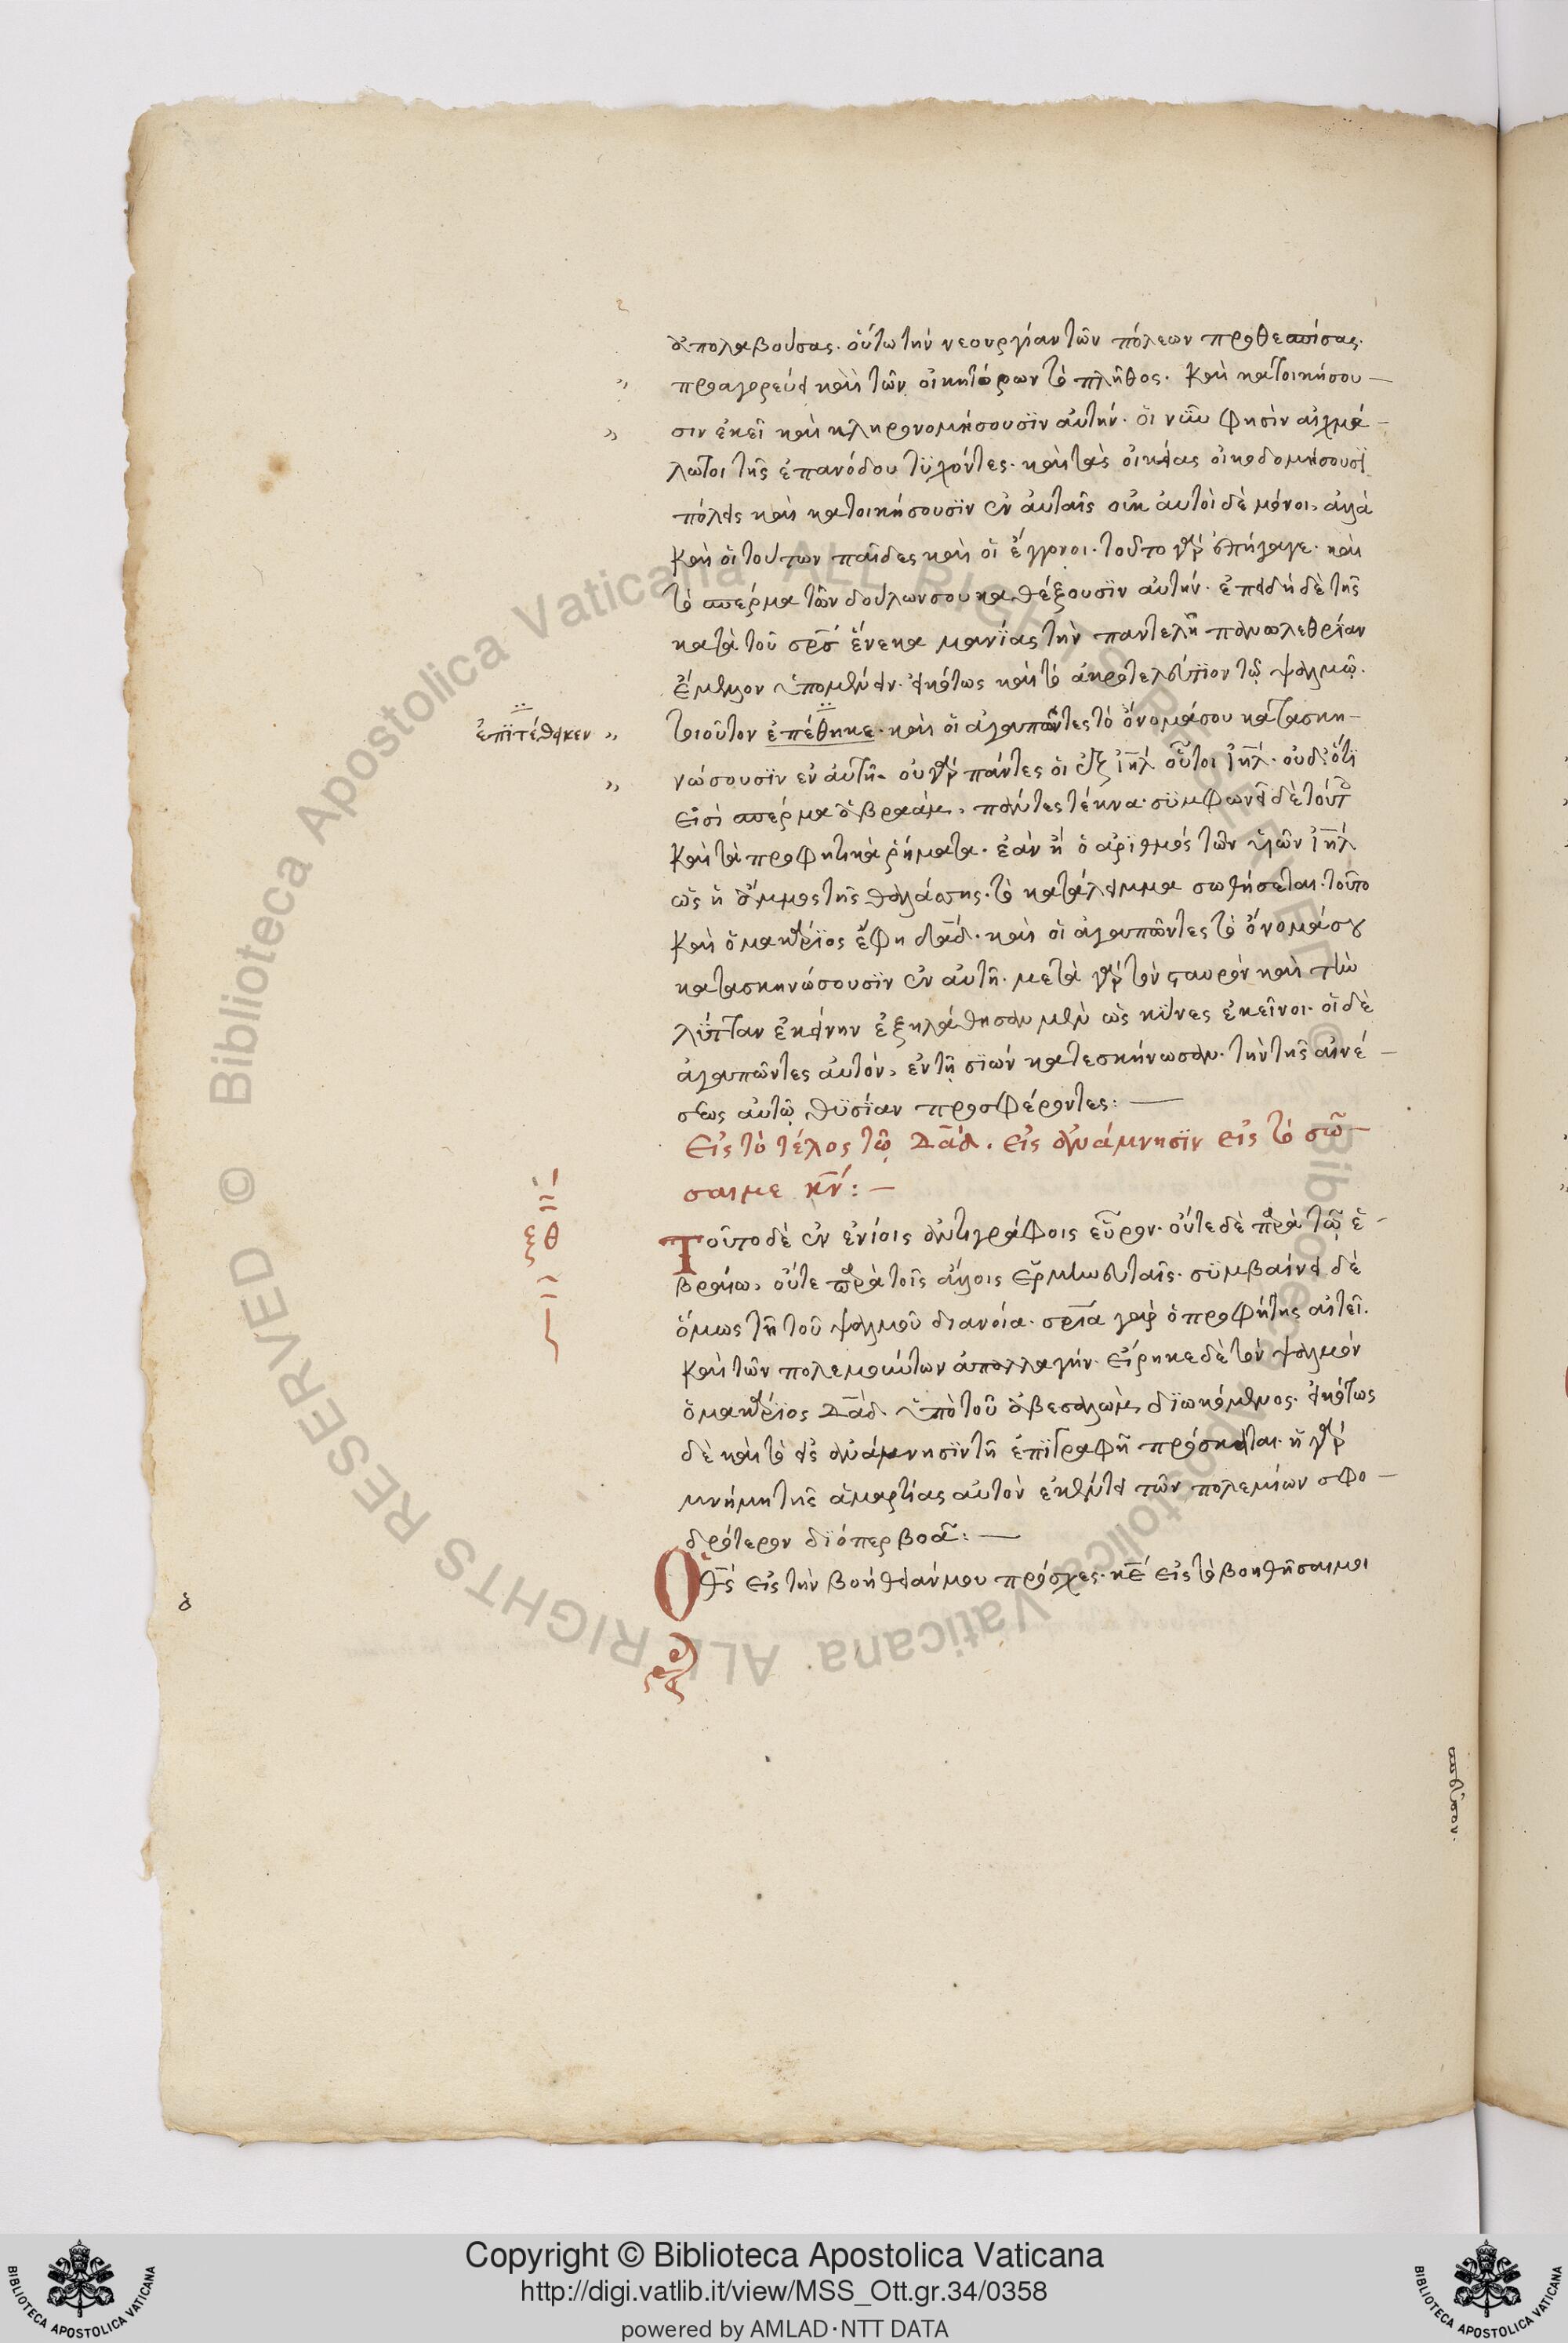 ἀπολαβούσας. οὕτω τὴν νεουργίαν τῶν πόλεων προθεσπίσας.
προαγορεύει καὶ τῶν οἰκητόρων τὸ πλῆθος. Καὶ κατοικήσου —
σιν ἐκεῖ καὶ κληρονομήσουσϊν αὐτήν. οἱ νῦν φησὶν αἰχμά —
λωτοι τῆς ἐπανόδου τϋχόντες. καὶ τὰς οἰκείας οἰκοδομήσουσι
πόλεις καὶ κατοικήσουσϊν ἐν αὐταῖς οὐκ αὐτοὶ δὲ μόνοι, ἀλλὰ
Καὶ οἱ τούτων παῖδες καὶ οἱ ἔγγονοι. τοῦτο γὰρ ἐπήγαγε. καὶ
τὸ σπέρμα τῶν δούλων σου καθέξουσϊν αὐτήν. ἐπειδὴ δὲ τῆς
κατὰ τοῦ σρ̅σ̅ ἕνεκα μανίας τὴν παντελῆ πανωλεθρίαν
ἔμελλον ὑπομένειν. εἰκότως καὶ τὸ ἀκροτελεύτϊον τῷ ψαλμῷ.
ἐπϊτέθεικεν ,, τοιοῦτον ἐπέθηκε. καὶ οἱ ἀγαπῶντες τὸ ὄνομά σου κατασκη —
νώσουσϊν ἐν αὐτῇ. οὐ γὰρ πάντες οἱ ἐξ ι̅η̅λ̅ οὗτοι ι̅η̅λ̅. οὐδ' ὅτϊ
εἰσὶ σπέρμα ἀβραάμ, πάντες τέκνα. συμφωνεῖ δὲ τούτοις
Καὶ τὰ προφητικὰ ῥήματα. ἐὰν ᾖ ὁ ἀρϊθμός τῶν υἱῶν ι̅η̅λ̅
ὡς ἡ ἄμμος τῆς θαλάσσης. τὸ κατάλειμμα σωθήσεται. τοῦτο
Καὶ ὁ μακάρϊος ἔφη δα̅δ̅. καὶ οἱ ἀγαπῶντες τὸ ὄνομά σου
κατασκηνώσουσϊν ἐν αὐτῇ. μετὰ γὰρ τὸν σταυρὸν καὶ τὴν
λύτταν ἐκείνην ἐξηλάθησαν μὲν ὡς κύνες ἐκεῖνοι. οἱ δὲ
ἀγαπῶντες αὐτόν, ἐν τῇ σϊών κατεσκήνωσαν. τὴν τῆς αἰνέ —
σεως αὐτῷ θϋσϊαν προσφέροντες: —
Εἰς τὸ τέλος τῷ Δα̅δ̅. εἰς ἀνάμνησϊν εἰς τὸ σῶ —
σαι με κ̅ν̅: —
ξθ
Τοῦτο δὲ ἐν ἐνίοις ἀντιγράφοις εὗρον. οὔτε δὲ παρὰ τῷ ἑ —
βραίῳ, οὔτε παρὰ τοῖς ἄλλοις ἑρμηνευταῖς. συμβαίνει δὲ
ὅμως τῇ τοῦ ψαλμοῦ διανοίᾳ. σρ̅ι̅α̅ γὰρ ὁ προφήτης αἰτεῖ.
Καὶ τῶν πολεμούντων ἀπαλλαγήν. εἴρηκε δὲ τὸν ψαλμόν
ὁ μακάρϊος Δα̅δ̅. ὑπὸ τοῦ ἀβεσαλὼμ διωκόμενος. εἰκότως
δὲ καὶ τὸ εἰς ἀνάμνησϊν τῇ ἐπϊγραφῇ πρόσκειται. ἡ γὰρ
μνήμη τῆς ἁμαρτίας αὐτὸν ἐκέντει τῶν πολεμίων σφο —
δρότερον διόπερ βοᾷ: —
Ὁ θ̅ς̅ εἰς τὴν βοήθειάν μου πρόσχες. κ̅ε̅ εἰς τὸ βοηθῆσαι μοι
Copyright © Biblioteca Apostolica Vaticana
http://digi.vatlib.it/view/MSS_Ott.gr.34/0358
powered by AMLAD·NTT DATA
BIBLIOTECA APOSTOLICA VATICANA
BIBLIOTECA APOSTOLICA VATICANA
© Biblioteca Apostolica Vaticana ALL RIGHTS RESERVED © Biblioteca Apostolica Vaticana. ALL RIGHTS RESERVED